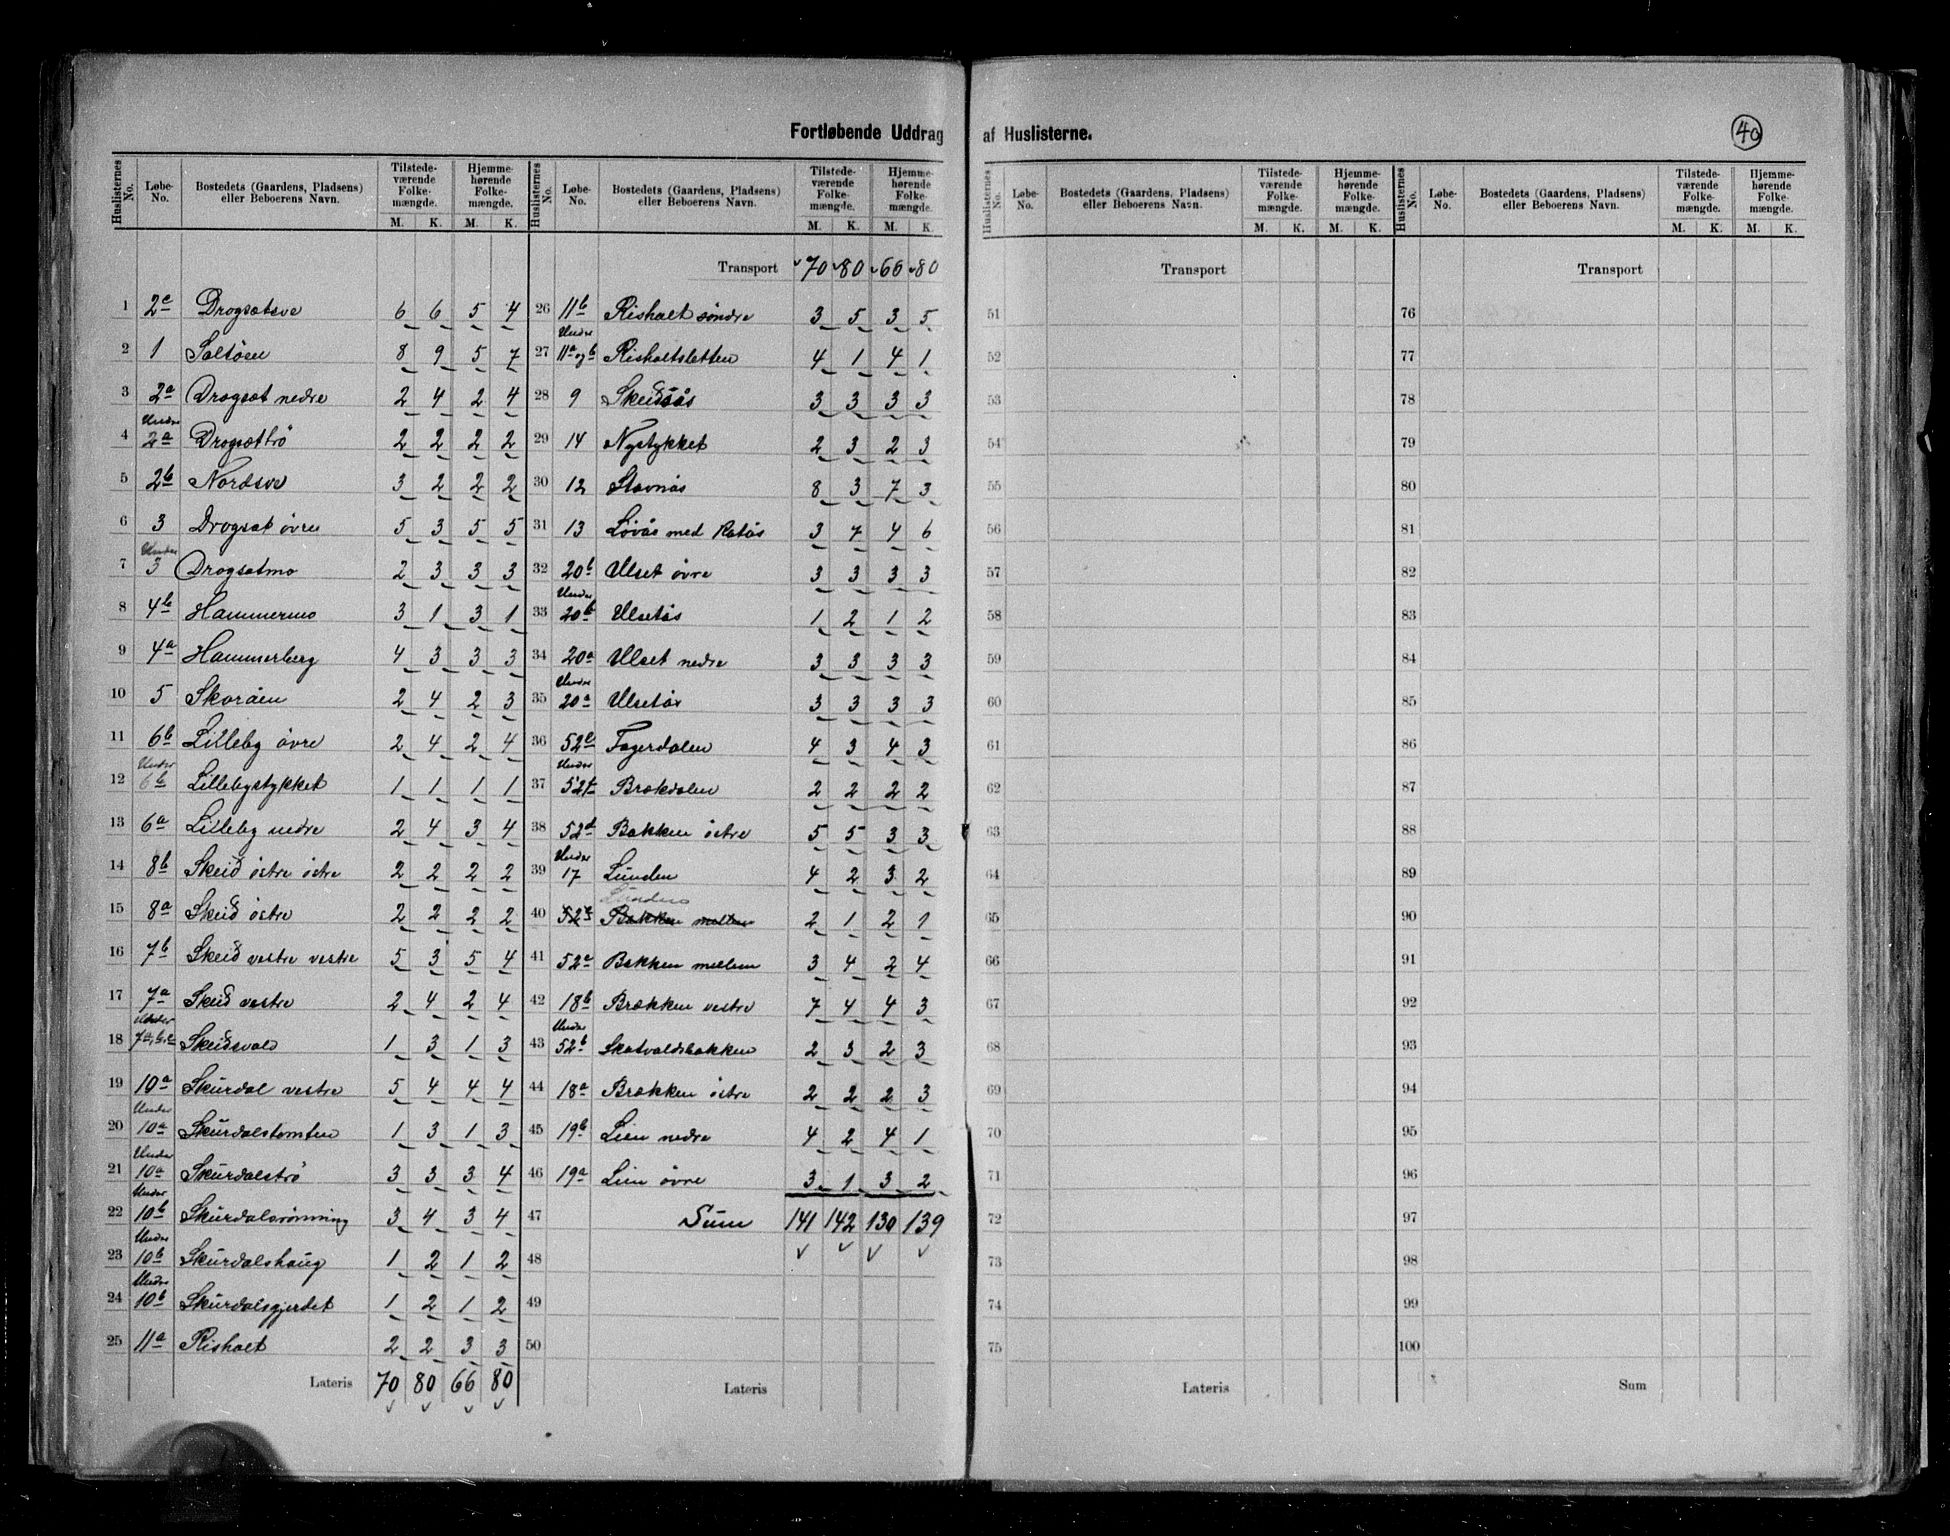 Fortløbende Uddrag af Huslisterne.
40
Huslisternes No. | Løbe-No. | Bostedets (Gaardens, Pladsens) eller Beboerens Navn. | Tilstedeværende Folkemængde. M. K. | Hjemmehørende Folkemængde. M. K.
1 2c Drogsetsve 6 6 5 4
2 1 Soltøen 8 9 5 7
3 2a Drogset nedre 2 4 2 4
4 Under 2a Drogsettrö 2 2 2 2
5 2b Nordsve 3 2 2 2
6 3 Drogset övre 5 3 5 5
7 Under 3 Drogsetmo 2 3 3 3
8 4b Hammermo 3 1 3 1
9 4a Hammerberg 4 3 3 3
10 5 Skoraen 2 4 2 3
11 6b Lilleby övre 2 4 2 4
12 Under 6b Lillebystykket 1 1 1 1
13 6a Lilleby nedre 2 4 3 4
14 8b Skeid östre östre 2 2 2 2
15 8a Skeid östre 2 2 2 2
16 7b Skeid vestre vestre 5 3 5 4
17 7a Skeid vestre 2 4 2 4
18 Under 7a,b,c Skeidsvald 1 3 1 3
19 10a Skurdal vestre 5 4 4 4
20 Under 10a Skurdalstomten 1 3 1 3
21 Under 10a Skurdalströ 3 3 3 4
22 Under 10b Skurdalsrönning 3 4 3 4
23 Under 10b Skurdalshaug 1 2 1 2
24 Under 10b Skurdalsgjerdet 1 2 1 2
25 11a Risholt 2 2 3 3
Lateris 70 80 66 80
Huslisternes No. | Løbe-No. | Bostedets (Gaardens, Pladsens) eller Beboerens Navn. | Tilstedeværende Folkemængde. M. K. | Hjemmehørende Folkemængde. M. K.
Transport 70 80 66 80
26 11b Risholt söndre 3 5 3 5
27 Under 11a og b Risholtsletten 4 1 4 1
28 9 Skeidsås 3 3 3 3
29 14 Nystykket 2 3 2 3
30 12 Stavnås 8 3 7 3
31 13 Løvås med Ratås 3 7 4 6
32 20b Ulset övre 3 3 3 3
33 Under 20b Ulsetås 1 2 1 2
34 20a Ulset nedre 3 3 3 3
35 Under 20a Ulsetås 3 3 3 3
36 52e Fagerdalen 4 3 4 3
37 Under 52f Brækdalen 2 2 2 2
38 52d Bakken östre 5 5 3 3
39 Under 17 Lunden 4 2 3 2
40 52c Bakken mellem 2 1 2 1
41 52a Bakken mellem 3 4 2 4
42 18b Brækken vestre 7 4 4 3
43 Under 52b Skatvaldsbakken 2 3 2 3
44 18a Brækken östre 2 2 2 3
45 19b Lien nedre 4 2 4 1
46 19a Lien övre 3 1 3 2
47 Sum 141 142 130 139
48
49
50
Lateris
Huslisternes No. | Løbe-No. | Bostedets (Gaardens, Pladsens) eller Beboerens Navn. | Tilstedeværende Folkemængde. M. K. | Hjemmehørende Folkemængde. M. K.
Transport
51
52
53
54
55
56
57
58
59
60
61
62
63
64
65
66
67
68
69
70
71
72
73
74
75
Lateris
Huslisternes No. | Løbe-No. | Bostedets (Gaardens, Pladsens) eller Beboerens Navn. | Tilstedeværende Folkemængde. M. K. | Hjemmehørende Folkemængde. M. K.
Transport
76
77
78
79
80
81
82
83
84
85
86
87
88
89
90
91
92
93
94
95
96
97
98
99
100
Sum